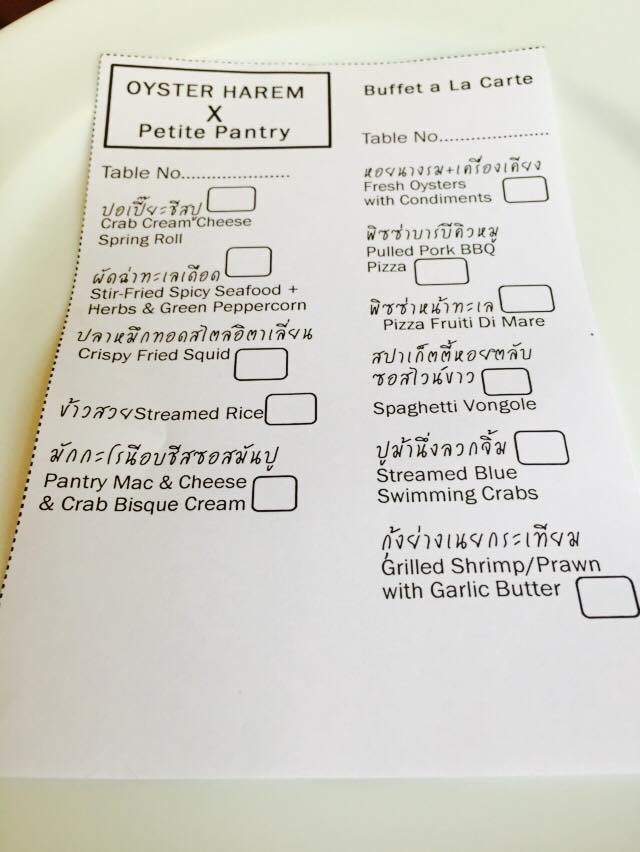 OYSTER HAREM
X
Petite Pantry
Table No....................
ปอเปี๊ยะชีสปู
Crab Cream Cheese
Spring Roll
ผัดฉ่าทะเลเดือด
Stir-Fried Spicy Seafood +
Herbs & Green Peppercorn
ปลาหมึกทอดสไตลอิตาเลี่ยน
Crispy Fried Squid
ข้าวสวย Streamed Rice
มักกะโรนีอบชีสซอสมันปู
Pantry Mac & Cheese
& Crab Bisque Cream
Buffet a La Carte
Table No....................
หอยนางรม+เครื่องเคียง
Fresh Oysters
with Condiments
พิซซ่าบาร์บีคิวหมู
Pulled Pork BBQ
Pizza
พิซซ่าหน้าทะเล
Pizza Fruiti Di Mare
สปาเก็ตตี้หอยตลับ
ซอสไวน์ขาว
Spaghetti Vongole
ปูม้านึ่งลวกจิ้ม
Streamed Blue
Swimming Crabs
กุ้งย่างเนยกระเทียม
Grilled Shrimp/Prawn
with Garlic Butter